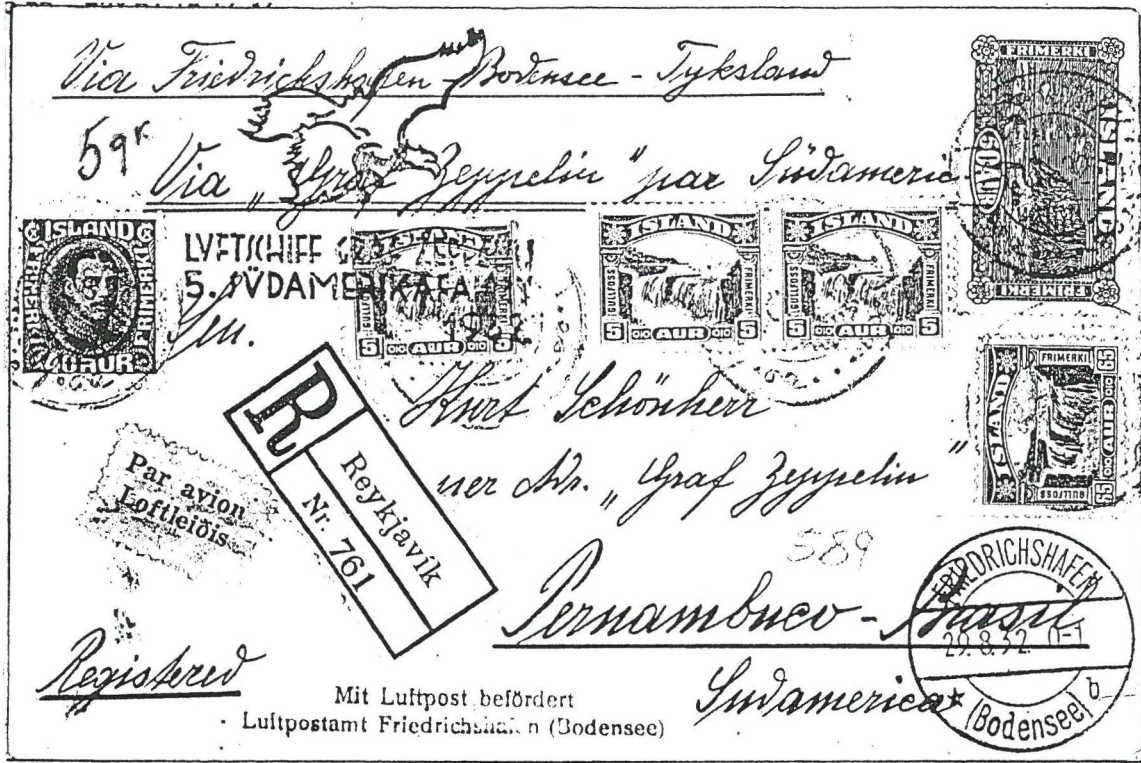 Via Friedrichshafen - Bodensee - Tyksland
59r
Via „Graf Zeppelin" par Südameric
FRIMERKI
ISLAND
50 AUR
FRIMERKI
ISLAND
FRIMERKI
FRIMERKI
40 AUR
LVFTSCHIFF
5. SÜDAMERIKAFA
ISLAND
GULLFOSS
5 AUR 5
ISLAND
GULLFOSS
FRIMERKI
5 AUR 5
ISLAND
GULLFOSS
FRIMERKI
5 AUR 5
ISLAND
FRIMERKI
GULLFOSS
65 AUR 65
Sen.
Kurt Schönherr
per Adr. „Graf Zeppelin"
R
Reykjavík
Nr. 761
Par avion
Loftleiðis
589
Pernambuco - Brasil
Südamerica
Registered
Mit Luftpost befördert
Luftpostamt Friedrichshafen (Bodensee)
FRIEDRICHSHAFEN
29.8.32. 0-1
(Bodensee) b